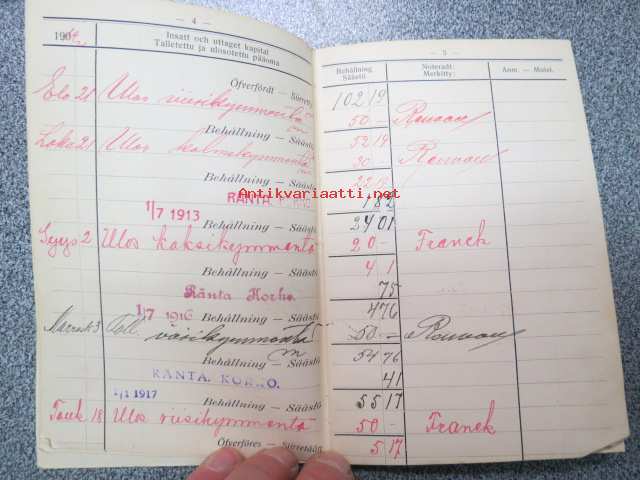 — 4 —
190
Insatt och uttaget kapital
Talletettu ja ulosotettu pääoma
Öfverfördt — Siirretty
Elo 21 Ulos viisikymmentä
m
Behållning — Säästö
Loka 21 Ulos kolmekymmentä
m
Behållning — Säästö
RÄNTA.
1/7 1913
Behållning — Säästö
Syys 2 Ulos kaksikymmentä
Behållning — Säästö
Ränta Korko.
1/7 1916
Behållning — Säästö
Marrask 3 Tall. viisikymmentä
m
Behållning — Säästö
RÄNTA. KORKO.
1/1 1917
Behållning — Säästö
Touk 18 Ulos viisikymmentä
Öfverföres — Siirretään
— 5 —
Behållning
Säästö
Noteradt:
Merkitty:
Anm. — Muist.
102 19
50 —
52 19
30 —
22 19
1 82
24 01
20 — Franck
4 1
75
4 76
50 —
54 76
41
55 17
50 — Franck
5 17
Antikvariaatti.net